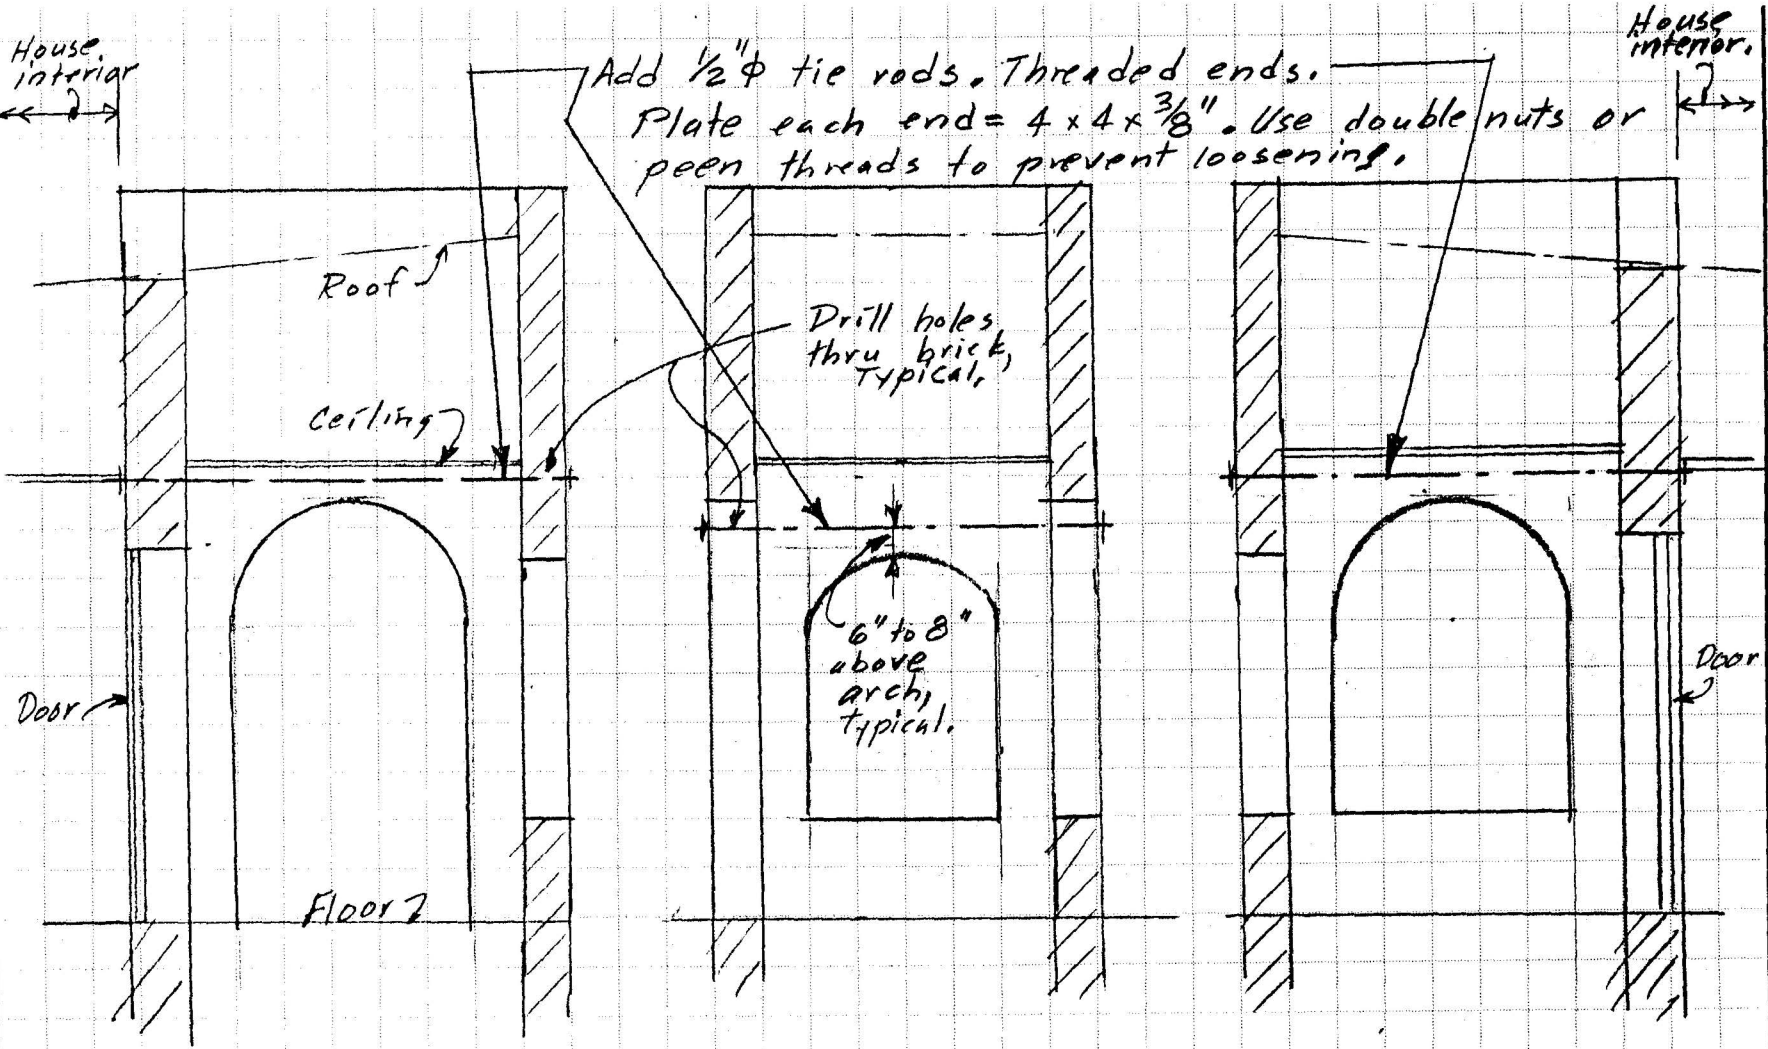 House
interior
Add 1/2"φ tie rods. Threaded ends.
Plate each end = 4 x 4 x 3/8". Use double nuts or
peen threads to prevent loosening.
House
interior.
Roof
Drill holes
thru brick,
Typical.
Ceiling
6" to 8"
above
arch,
typical.
Door
Door
Floor